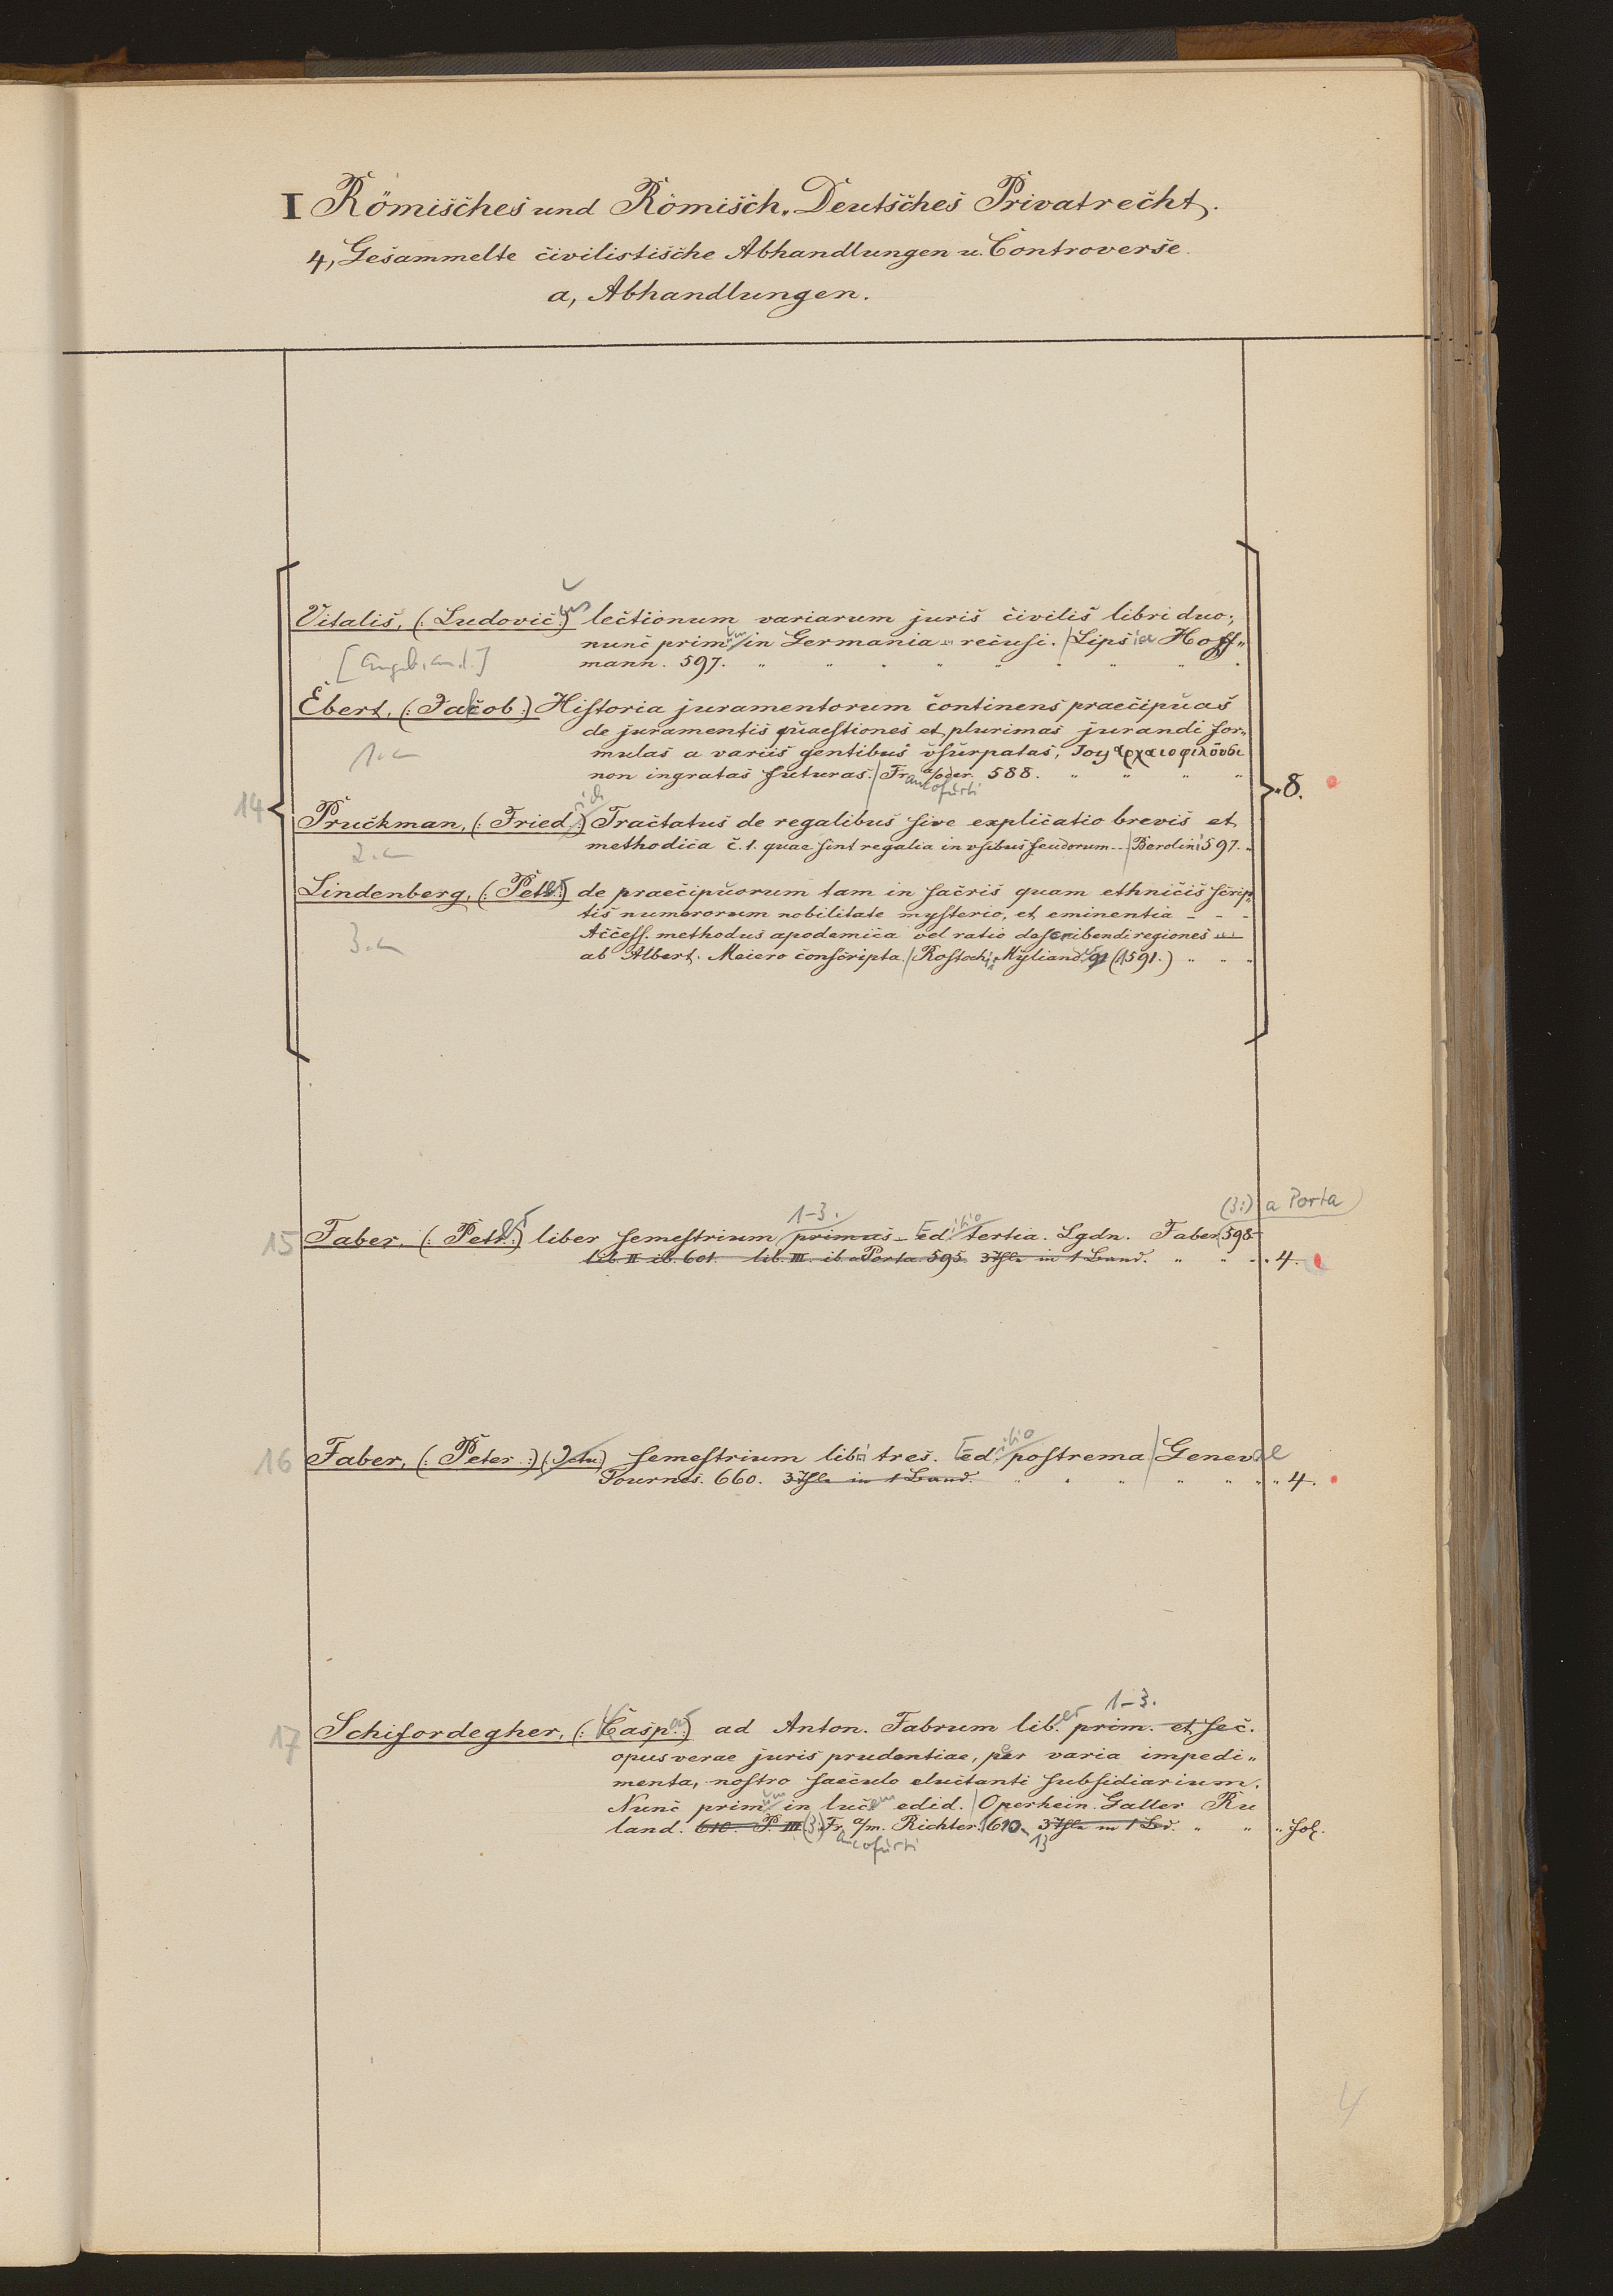 I Römisches und Römisch-Deutsches Privatrecht.
4, Gesammelte civilistische Abhandlungen u. Controverse.
a, Abhandlungen.
Vitalis, (: Ludovic:) us lectionum variarum juris civilis libri duo;
nunc prim um in Germania recusi. Lips iae Hoff-
mann. 597.
Ebert, (: Jakob:) Historia juramentorum continens praecipuas
de juramentis quaestiones et plurimas jurandi for-
1.
mulas a variis gentibus usurpatas, τοις αρχαιοφιλοῦσι
non ingratas futuras. Fr. a/oder. 588.
ancofurti
8.
14
Pruckman, (: Fried:) Tractatus de regalibus sive explicatio brevis et
2.
methodica c. 1. quae sint regalia in usibus feudorum -- Berolini 597.
Lindenberg, (: Petr:) de praecipuorum tam in sacris quam ethnicis scrip-
tis numerorum nobilitate mysterio, et eminentia - - -
3.
Access. methodus apodemica vel ratio describendi regiones
ab Albert. Meiero conscripta. Rostochi Myliand. 91 (1591.)
(3:) a Porta
1-3.
15 Faber, (: Petr:) liber semestrium primus - Editio tertia. Lgdn. Faber 598
lib. II ib. 601. lib. III. ib. a Porta. 595 3 Thle in 1 Band. 4.
16 Faber, (: Peter:) (: Jctu:) semestrium libri tres. Editio postrema Genevae
Tournes. 660. 3 Thle in 1 Band. 4.
1-3.
17 Schifordegher, (: Caspar:) ad Anton. Fabrum lib. prim. et sec.
opus verae juris prudentiae, per varia impedi-
menta, nostro saeculo eluctanti subsidiarium.
Nunc primum in lucem edid. Operhein. Galler Ru
land. 610. P. III (3:) Fr. a/m. Richter. 610- 3 Thle in 1 Bd. fol.
ancofurti 13
4